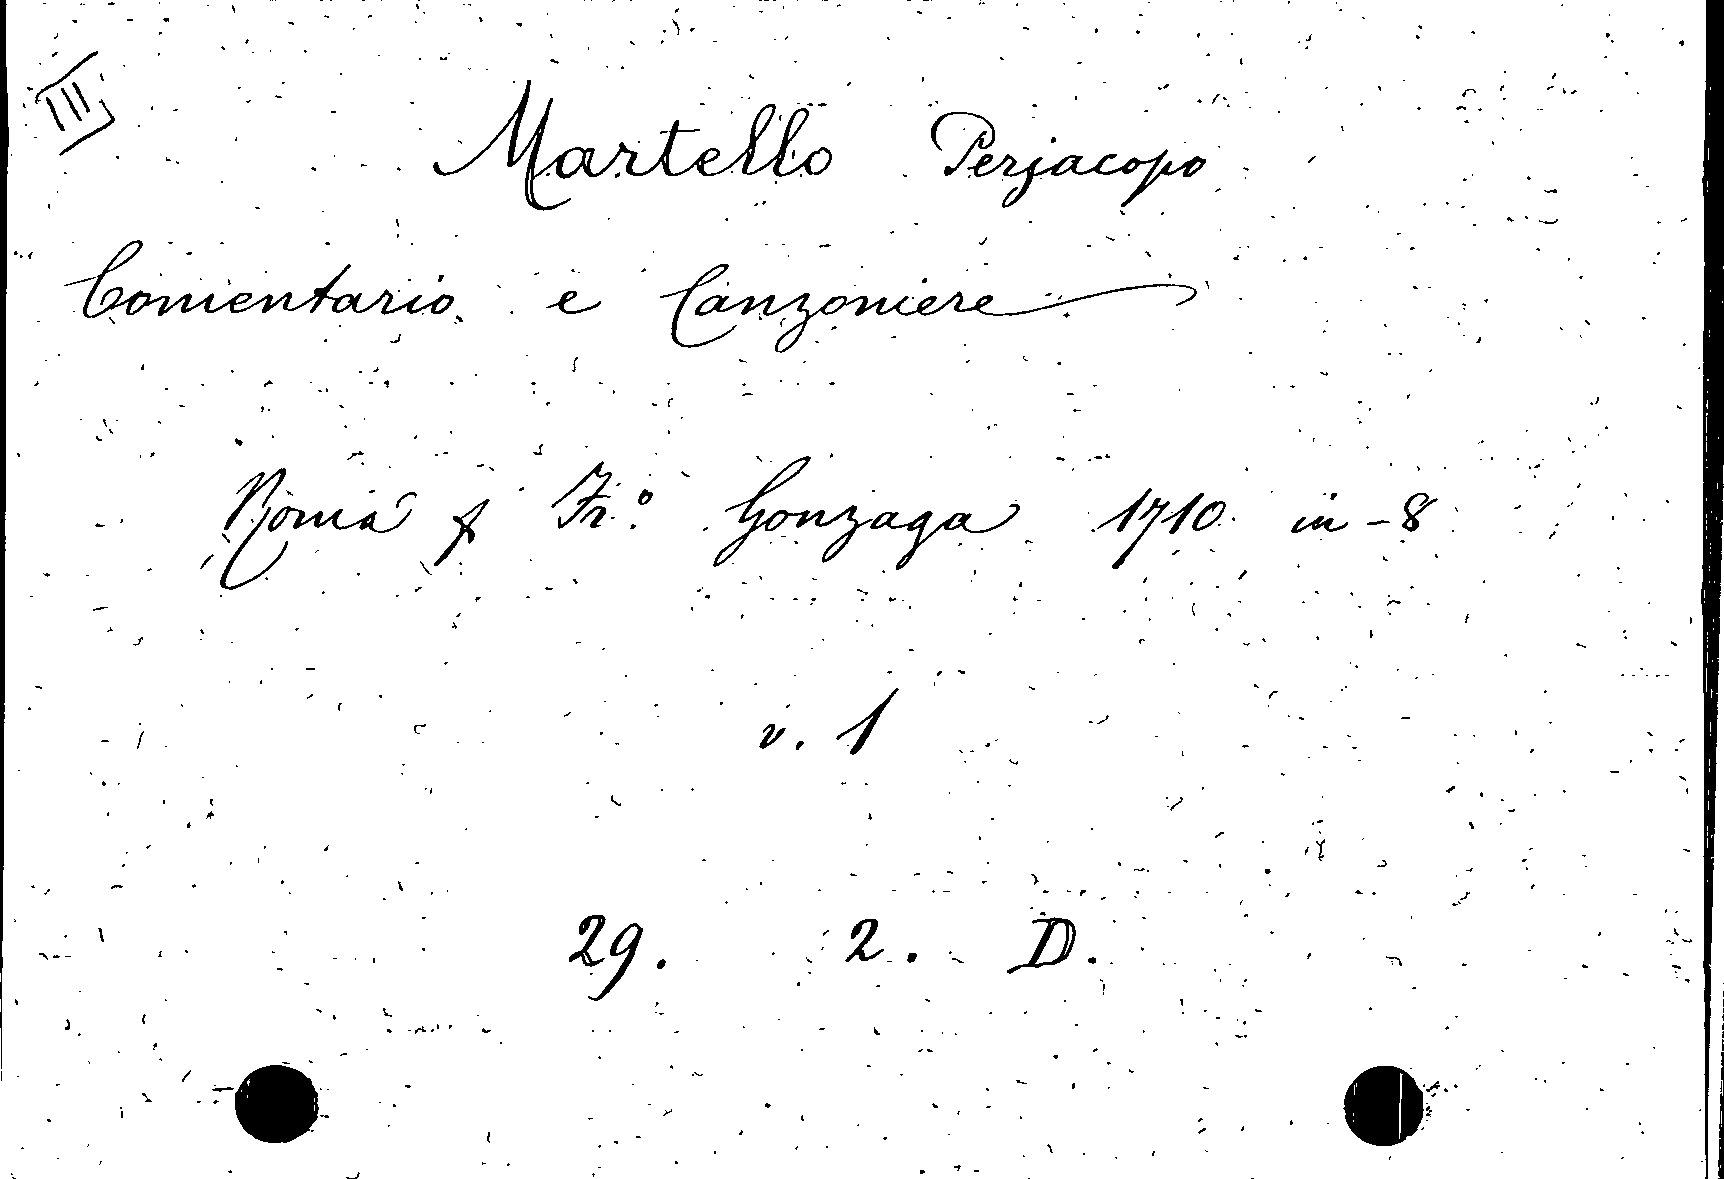 III
Martello Perjacopo
Comentario e Canzoniere
Roma f Fr.º Gonzaga 1710 in-8
v. 1
29. 2. D.